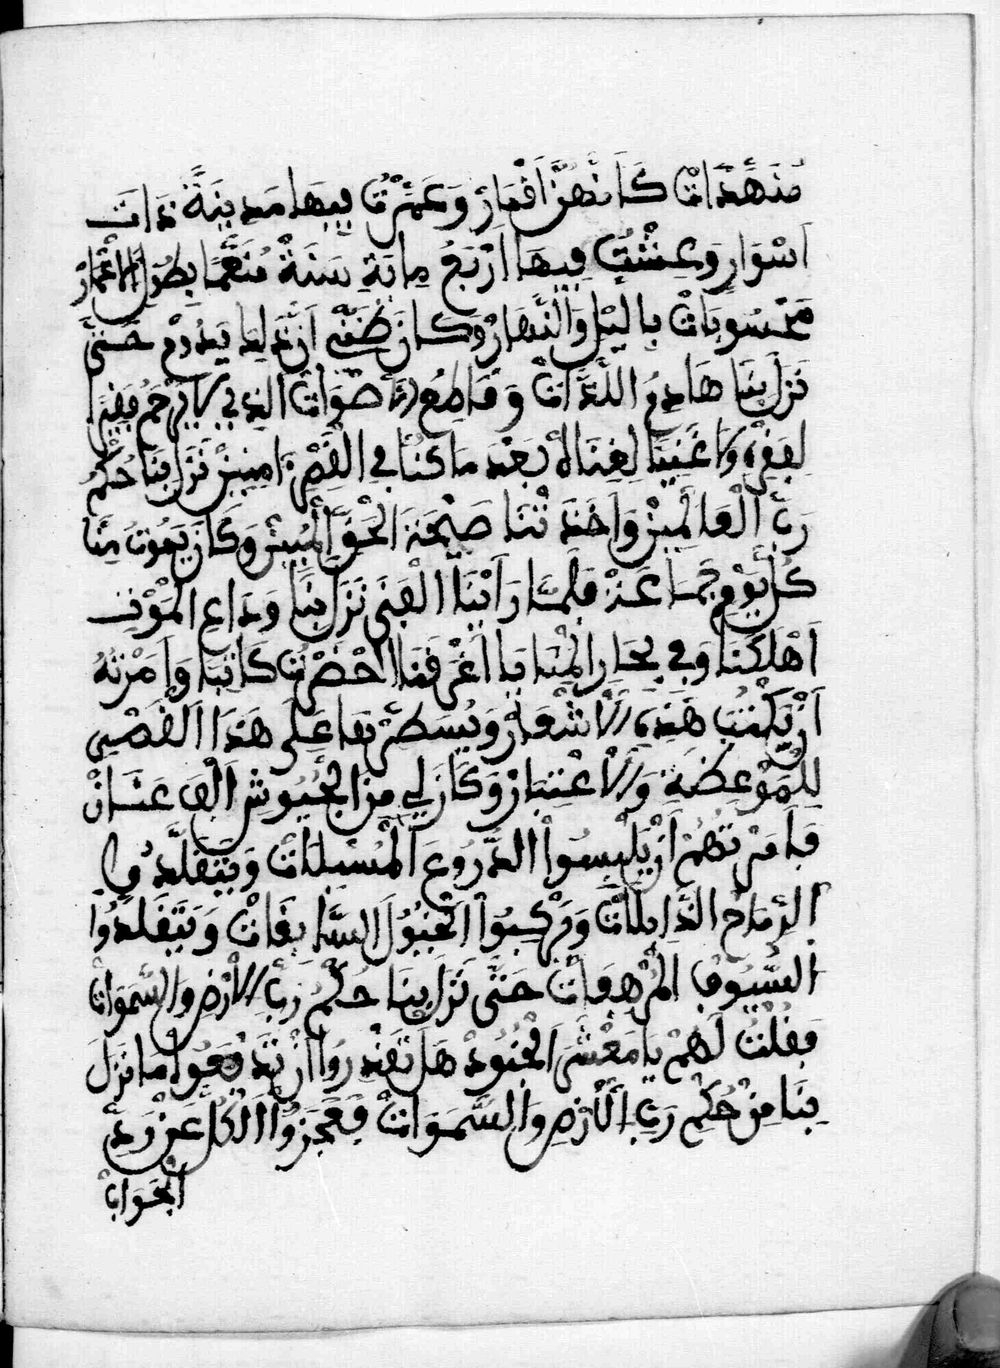 مُنَهَّدَاتْ كَأَنَّهُنَّ اَقْمَارْ وَعَمَّرْتُ فِيهَا مَدِينَةً ذَاتَ
اَسْوَارٍ وَعِشْتُ فِيهَا اَرْبَعُ مِايَةِ سَنَةً مُنَعَّمًا بِطُولِ الاَعْمَارْ
مَحْسُوبَاتْ بِاليْلِ وَالنَّهَارْ وَكَانَ ظَنِّي اَنَّ ذَلِكَ يَدُومْ حَتَّى
نَزَلَ بِنَا هَادِمُ اللَّذَّاتْ وَقَاطِعُ الاَصْوَاتْ الذِي لَا يَرْحَمُ فَقِيرًا
لِفَقْرِهِ وَلَا غَنِيًّا لِغِنَاهْ بَعْدَ مَا كُنَّا فِي الْقَصْرِ ءَامِنِينْ نَزَلَ بِنَا حُكْمُ
رَبِّ الْعَالَمِينْ وَاَخَذَتْنَا صَيْحَةَ الْحَقِّ الْمُبِينْ وَكَانَ يَمُوتُ مِنَّا
كُلَّ يَوْمٍ جَمَاعَةْ فَلَمَّا رَاَيْنَا الْفَنَى نَزَلَ بِنَا وَدَاعِ الْمَوْتِ
اَهْلَكَنَا وَفِي بِحَارِ الْمَنَايَا اَغْرَقَنَا اَحْضَرْتُ كَاتِبًا وَاَمَرْتُهُ
اَنْ يَكْتُبَ هَذِهِ الْاَشْعَارْ وَيُسَطِّرْهَا عَلَى هَذَا الْقَصْرِ
لِلْمَوْعِضَةِ وَالْاِعْتِبَارْ وَكَانَ لِي مِنَ الْجُيُوشِ اَلْفِ عَنَانْ
فَاَمَرْتُهُمْ اَنْ يَلْبِسُوا الدُّرُوعَ الْمُسْبَلَاتْ وَيَتَقَلَّدُوا
الرِّمَاحْ الذَّابِلَاتْ وَيَرْكَبُوا الْخُيُولَ السَّابِقَاتْ وَيَتَقَلَّدُوا
السُّيُوفَ الْمُرْهِفَاتْ حَتَّى نَزَلَ بِنَا حُكْمُ رَبِّ الْاَرْضِ وَالسَّمَوَاتْ
فَقُلْتُ لَهُمْ يَا مَعْشَرَ الْجُنُودْ هَلْ تَقْدِرُوا اَنْ تَدْفَعُوا مَا نَزَلَ
بِنَا مِنْ حُكْمِ رَبِّ الْاَرْضِ وَالسَّمَوَاتْ فَعَجَزُوا الْكُلُّ عَنْ رَدِّ
الْجَوَابْ